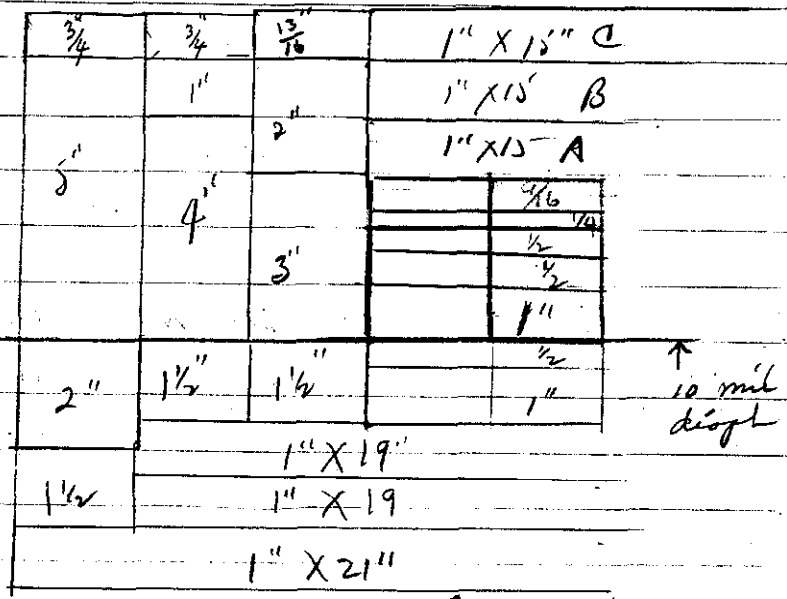 3/4" 3/4" 13/16" 1" X 15" C
1" 1" X 15 B
2" 1" X 15 A
5" 4" 9/16
1/4
1/2
3" 1/2
1"
2" 1 1/2" 1 1/2" 1/2
1" ↑ 10 mil
diaph
1" X 19"
1 1/2 1" X 19
1" X 21"